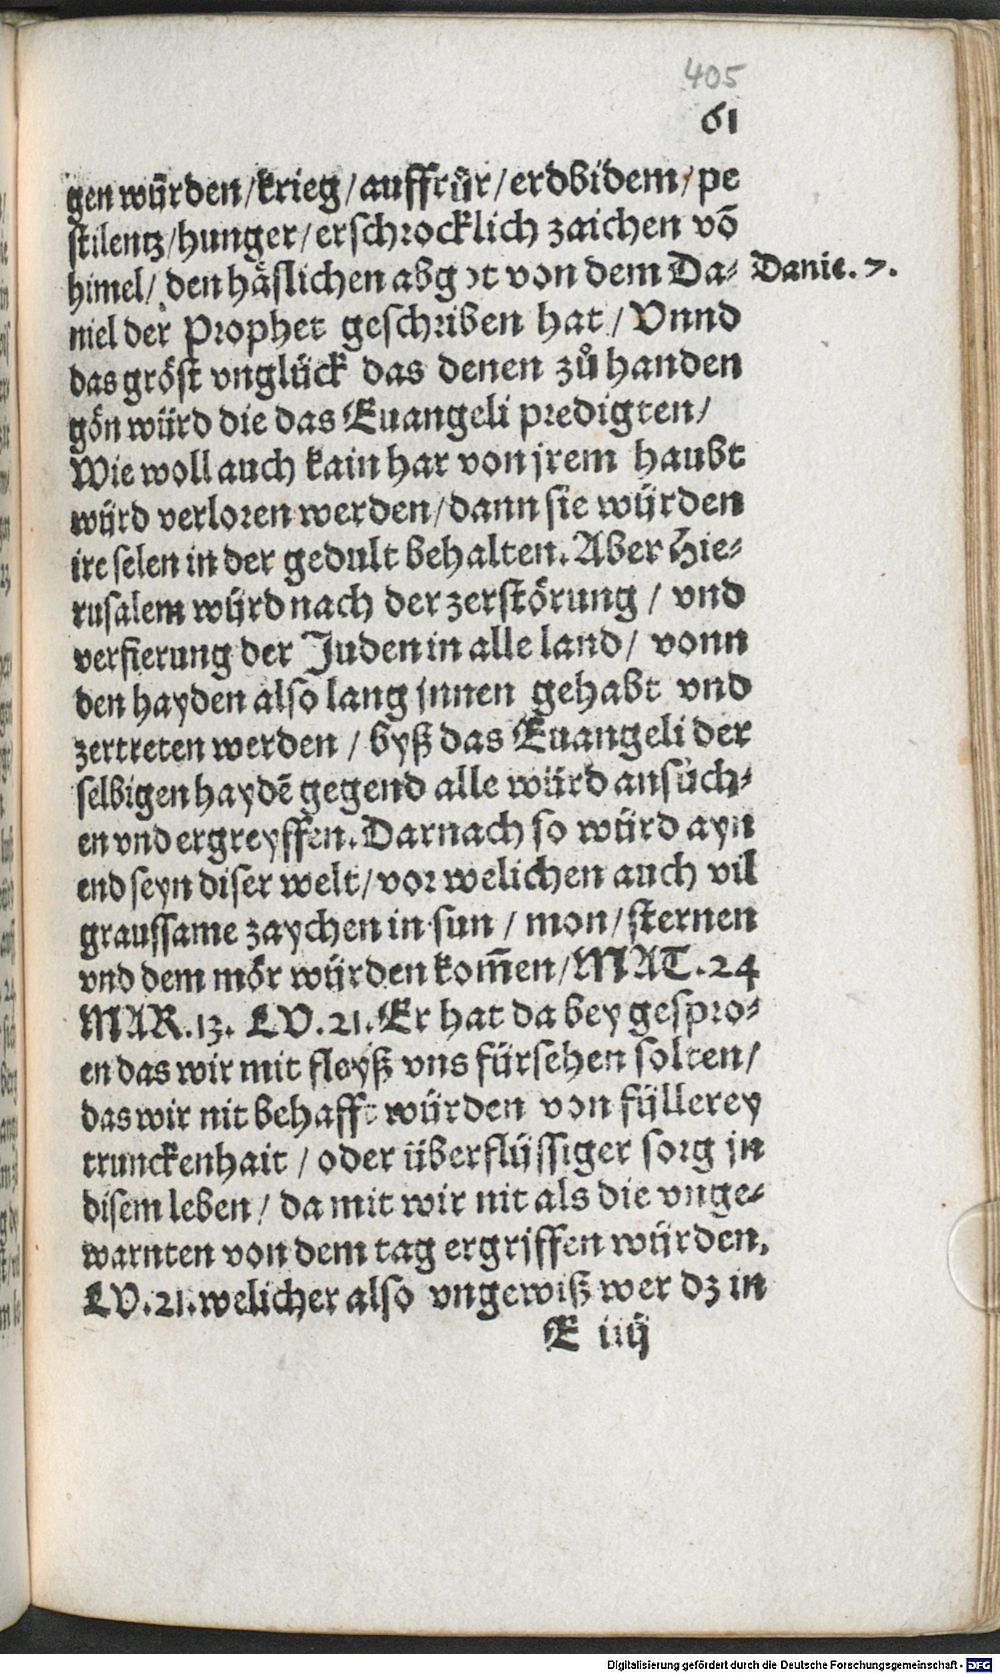 405
61
gen würden/krieg/auffrůr/erdbidem/pe
stilentz/hunger/erschrocklich zaichen vō
himel/ den häslichen abgot von dem Da⸗ Danie. 7.
niel der Prophet geschriben hat/ Vnnd
das gröst vnglück das denen zů handen
gön würd die das Euangeli predigten/
Wie woll auch kain har von jrem haubt
würd verloren werden/dann sie würden
ire selen in der gedult behalten. Aber Hie⸗
rusalem würd nach der zerstörung / vnd
verfierung der Juden in alle land/ vonn
den hayden also lang jnnen gehabt vnd
zertreten werden / byß das Euangeli der
selbigen haydē gegend alle würd ansůch⸗
en vnd ergreyffen. Darnach so würd ayn
end seyn diser welt/vor welichen auch vil
graussame zaychen in sun / mon/sternen
vnd dem mör würden kom̄en/MAT.24
MAR.13. LV.21. Er hat da bey gespro⸗
en das wir mit fleyß vns fürsehen solten/
das wir nit behafft würden von füllerey
trunckenhait / oder überflüssiger sorg jn
disem leben/ da mit wir nit als die vnge⸗
warnten von dem tag ergriffen würden.
LV.21. welicher also vngewiß wer dz in
E iiij
Digitalisierung gefördert durch die Deutsche Forschungsgemeinschaft - DFG